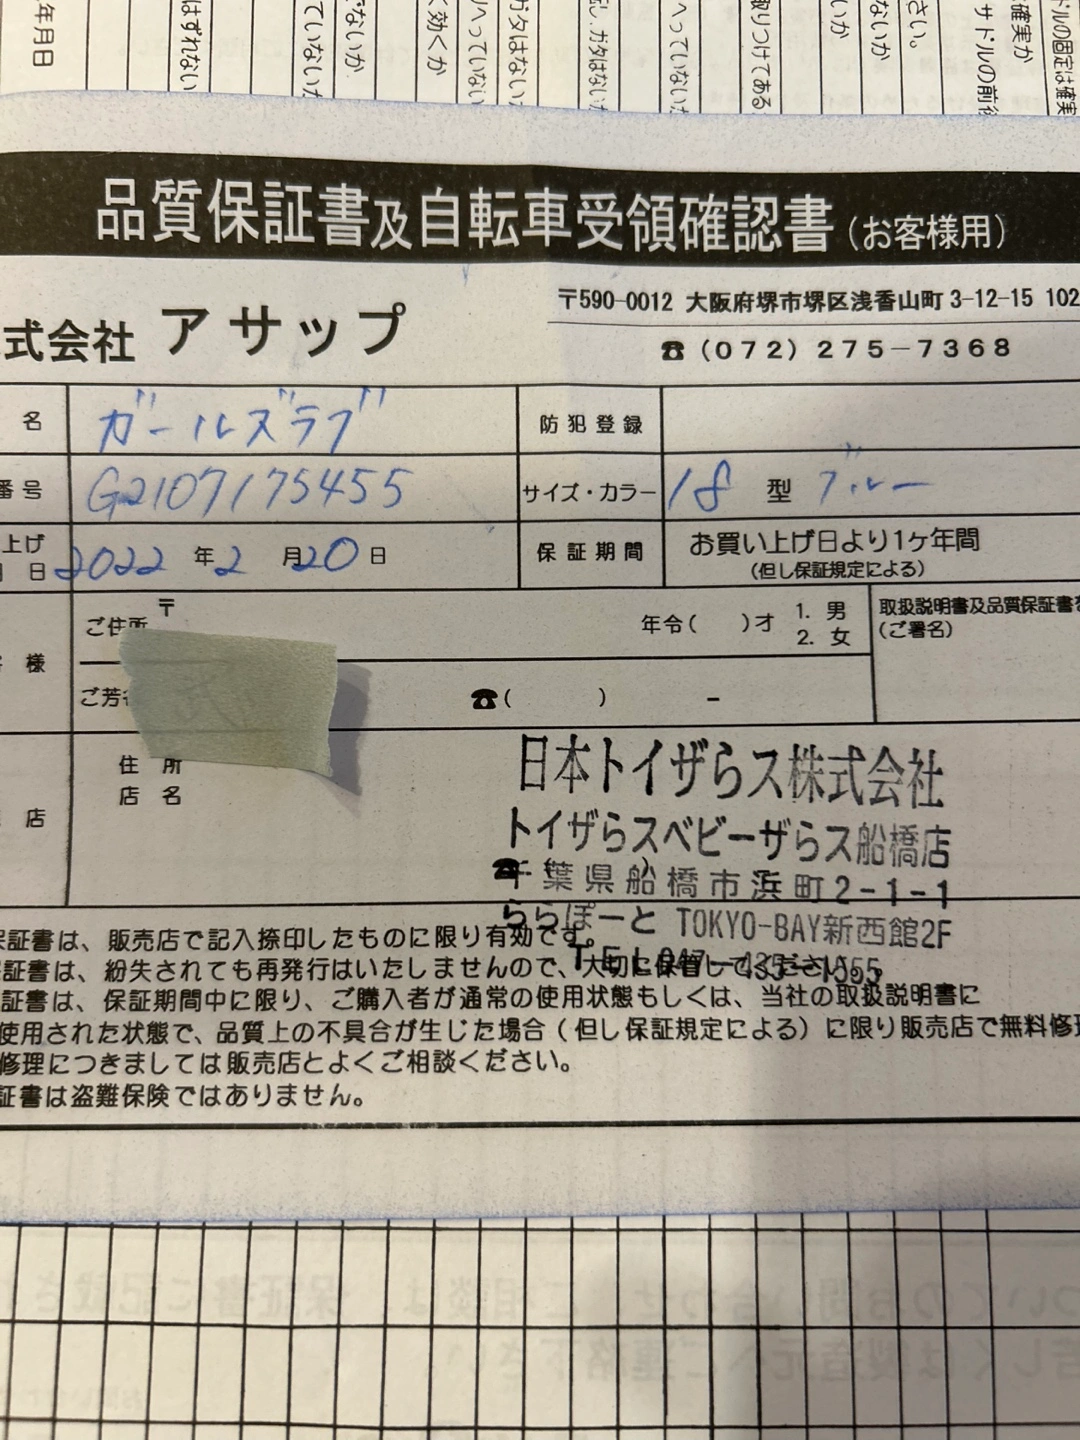 年月日
はずれない
ていないか
でないか
く効くか
へっていない
ガタはないか
ガタはないか
へっていないか
取りつけてある
いか
ないか
さい。
確実か
サドルの前後
ドルの固定は確実
品質保証書及自転車受領確認書(お客様用)
式会社 アサップ
〒590-0012 大阪府堺市堺区浅香山町 3-12-15 102
☎(072)275-7368
名 ガールズラブ 防犯登録
番号 G2107175455 サイズ・カラー 18 型 ブルー
上げ
日 2022 年 2 月 20 日 保証期間 お買い上げ日より1ヶ年間
(但し保証規定による)
様 ご住所 〒 年令( )才 1. 男
2. 女
取扱説明書及品質保証書を
(ご署名)
ご芳 ☎( ) -
店 住所
店名
日本トイザらス株式会社
トイザらスベビーザらス船橋店
☎ )
千葉県船橋市浜町2-1-1
ららぽーと TOKYO-BAY新西館2F
TEL 047-435-1555
保証書は、販売店で記入捺印したものに限り有効です。
証書は、紛失されても再発行はいたしませんので、大切に保管してください。
証書は、保証期間中に限り、ご購入者が通常の使用状態もしくは、当社の取扱説明書に
使用された状態で、品質上の不具合が生じた場合(但し保証規定による)に限り販売店で無料修理
修理につきましては販売店とよくご相談ください。
証書は盗難保険ではありません。